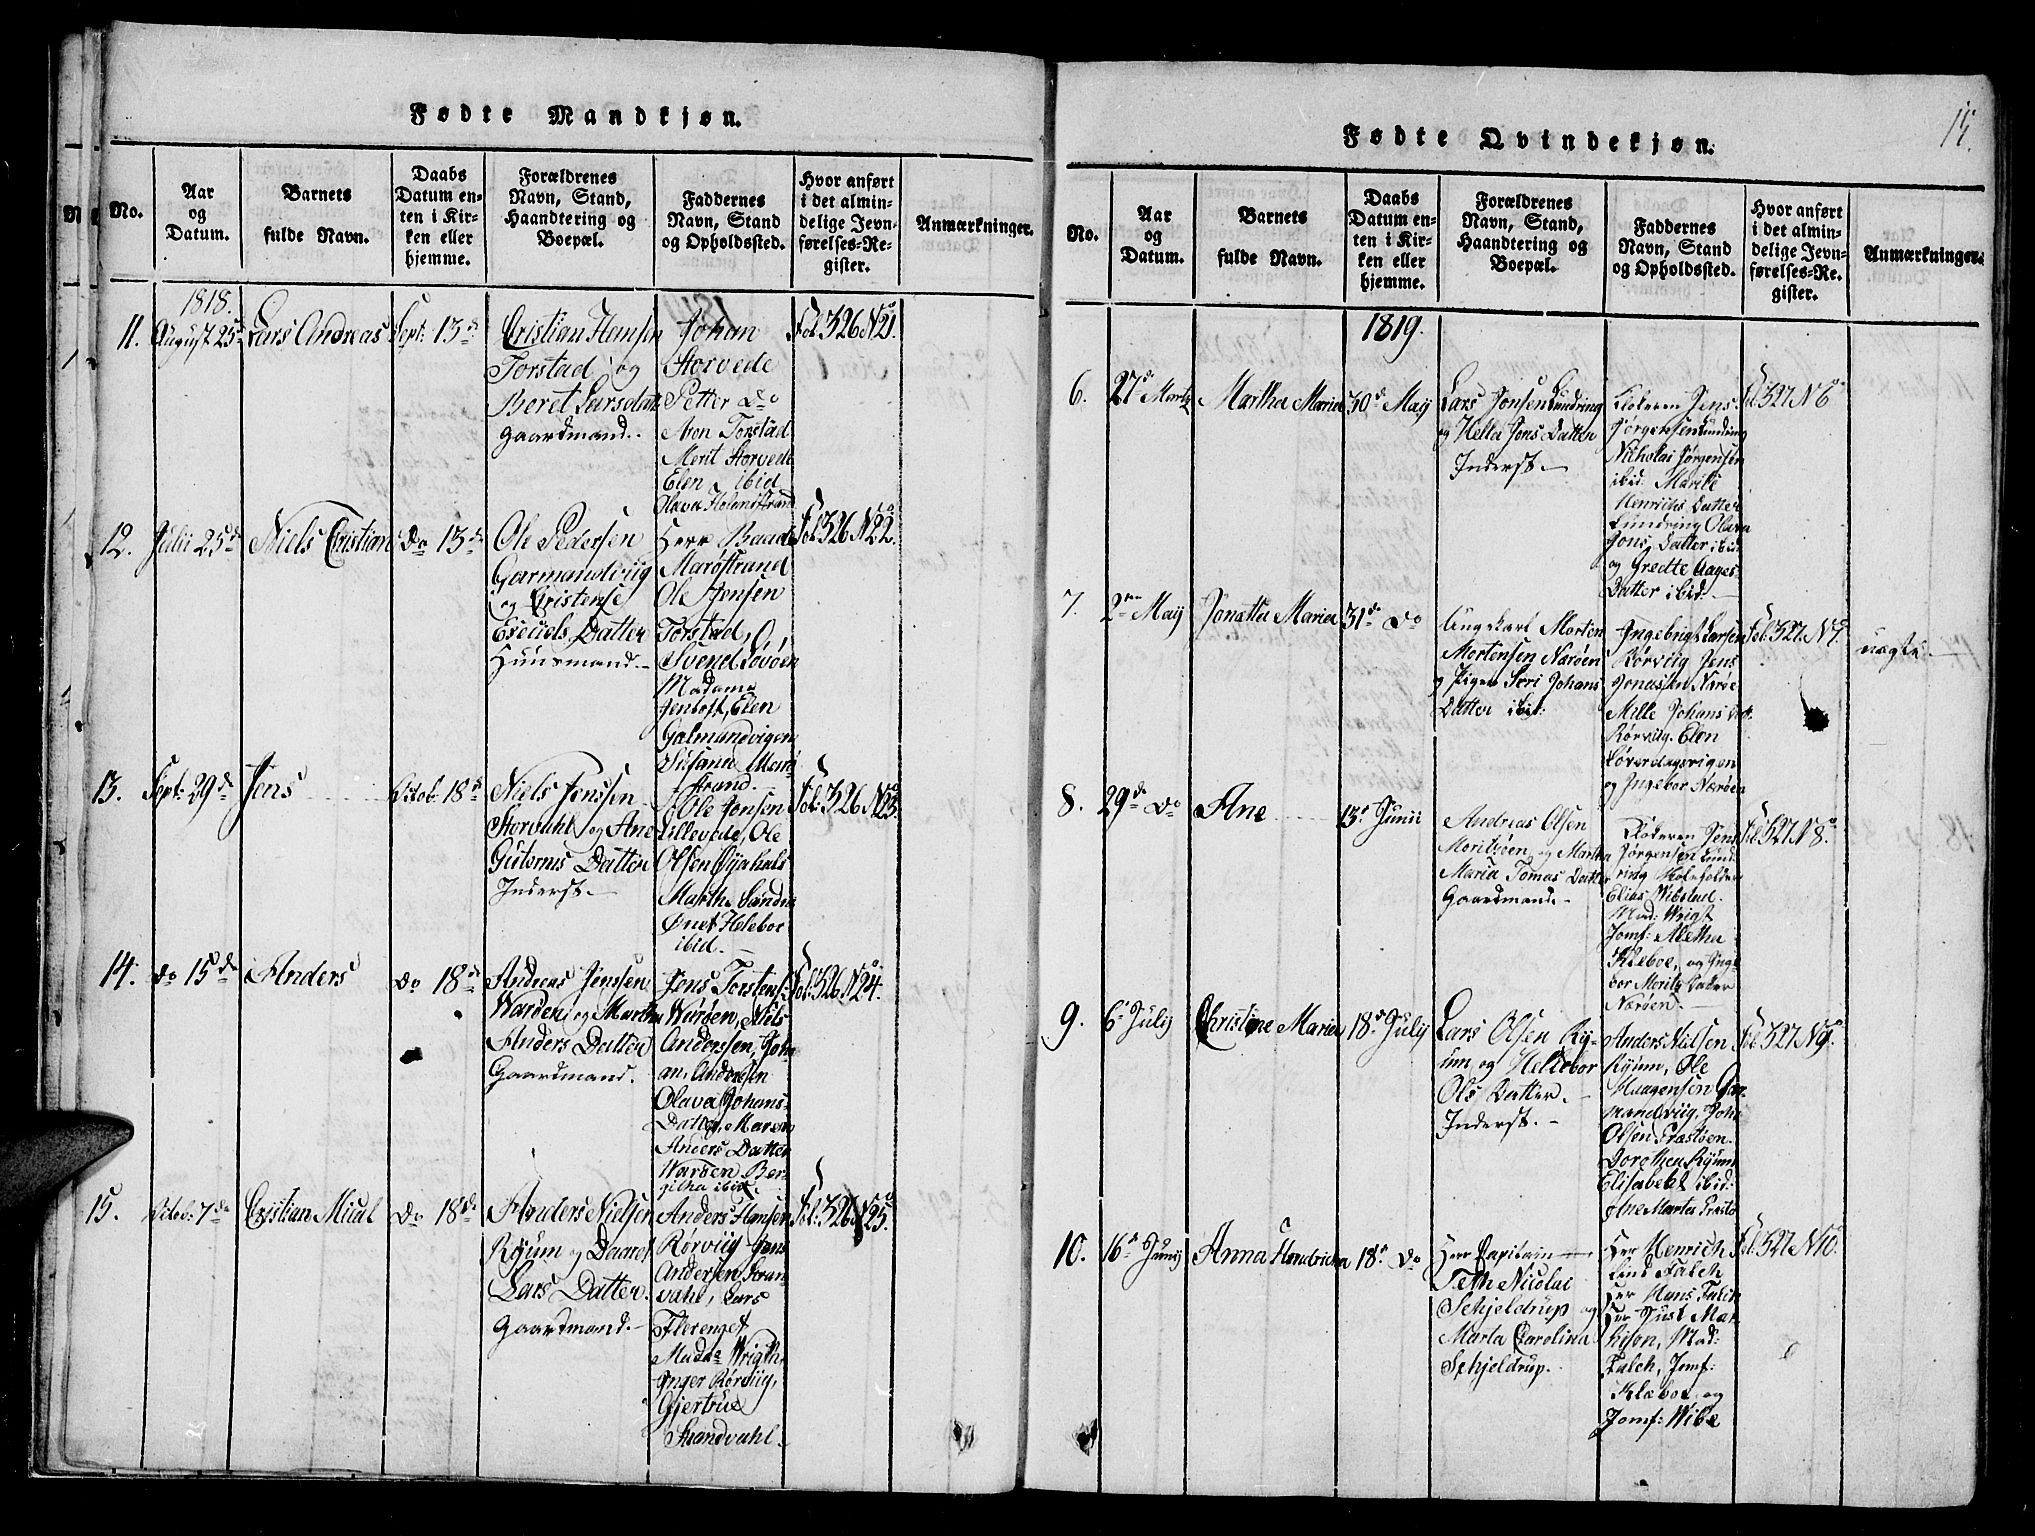 Fødte Mandkjøn.
No.
Aar
og
Datum.
Barnets
fulde Navn.
Daabs
Datum en-
ten i Kir-
ken eller
hjemme.
Forældrenes
Navn, Stand,
Haandtering og
Boepæl.
Faddernes
Navn, Stand
og Opholdssted.
Hvor anført
i det almin-
delige Jevn-
førelses-Re-
gister.
Anmærkninger.
1818.
11.
August 25de
Lars Andreas
Sept: 13de
Cristian Hansen
Torstad og
Beret Larsdatr
Gaardmand.
Johan
Storvede
Petter Do
Aron Torstad
Merit Storvede
Elen ibid
Olava Holmstrand
Fol: 326 No 21.
12.
Julii 25de
Niels Cristian
Do 13de
Ole Pedersen
Garmandviig
og Cristense
Eseciels Datter
Huusmand.
Herr Baade
Marøstrand
Ole Jensen
Torstad,
Svend Løvøen
Madame
Jentoft, Elen
Galmandvigen
Susana Marø
strand.
Fol: 326 No 22.
13.
Sept: 29de
Jens
Octob: 18de
Niels Jenssen
Storvahl og Ane
Gutorms Datter
Inderst.
Ole Jonsen
Lillevede, Ole
Olsen
Martha Sandn
Ønet Heleboe
ibid.
Fol: 326 No 23.
14.
Do 15de
Anders
Do 18de
Andreas Jenssen
Warøen og Martha
Anders Datter
Gaardmand.
Jens Torstens:
Warøen, Niels
Anderssen, Joh
an, Andersen
Olava Johans-
Datter, Maren
Anders Datter
Warøen Ber-
githa ibid.
Fol: 326. No 24.
15.
Octob: 7de
Cristian Mical
Do 18de
Anders Nielsen
Ryum og Daaret
Lars Datter.
Gaardmand.
Anders Hansen
Rørviig Jens
Andersen Stran
vahl, Lars
Flerenget
Mada Wrigth,
Inger Rørviig,
Gjertrue
Strandvahl.
Fol: 326 No 25.
15.
Fødte Qvindekjøn.
No.
Aar
og
Datum.
Barnets
fulde Navn.
Daabs
Datum en-
ten i Kir-
ken eller
hjemme.
Forældrenes
Navn, Stand,
Haandtering og
Boepæl.
Faddernes
Navn, Stand
og Opholdssted.
Hvor anført
i det almin-
delige Jevn-
førelses-Re-
gister.
Anmærkninger.
1819.
6.
27de Martz
Martha Maria
30de Maij
Lars Jonsen Lundring
og Hella Jons Datter
Inderst.
Klokeren Jens
Jørgensen Lundring
Nicholai Jørgensen
ibid. Marile
Henrichs Datter
Lundring Olava
Jons Datter ibid
og Gredte Aages-
Datter ibid.
Fol: 327 No 6
7.
2den Maij
Jonetta Maria
31de Do
Ungekarl Morten
Mortensen Nærøen
og Pigen Seri Johans
Datter ibid:
Ingebrigt Larsen
Rørviig Jens
Jonassen Nærøe
Mille Johans Datr.
Rørviig. Elen
Løverdagsvigen
og Ingebor Nærøen
Fol: 327. No 7.
uægte.
8.
29de Do
Ane
13de Junii
Andreas Olsen
Moritsøen og Martha
Maria Tomas Datter
Gaardmand.
Klokeren Jens
Jørgensen Lund-
ring
Elias Wibstad.
Mad: Wrigt
Jomf: Aletha
Klæboe, og Inge-
bor Moritz Datter
Nærøen.
Fol: 327 No 8.
9.
6te Julij
Christine Maria
18de Julij
Lars Olsen Ry-
um og Hellebor
Ols Datter.
Inderst.
Anders Nielsen
Ryum, Ole
Haagensen Gar-
mandviig, John
Olsen Fræstøen.
Dorothea Ryum
Elisabeht ibid:
Ane Marta Fræstø
Fol: 327 No 9.
10.
16de Junij
Anna Hendricha
18de Do
Herr Capitain
Teth Nicolai
Schjeldrup og
Marta Carolina
Schjeldrup.
Her Henrich
Lind Falch
Her Hans Falch
Her Just Mar-
Mad:
Falch, Jomf:
Klæboe og
Jomf: Wibe
Fol: 327 No 10.